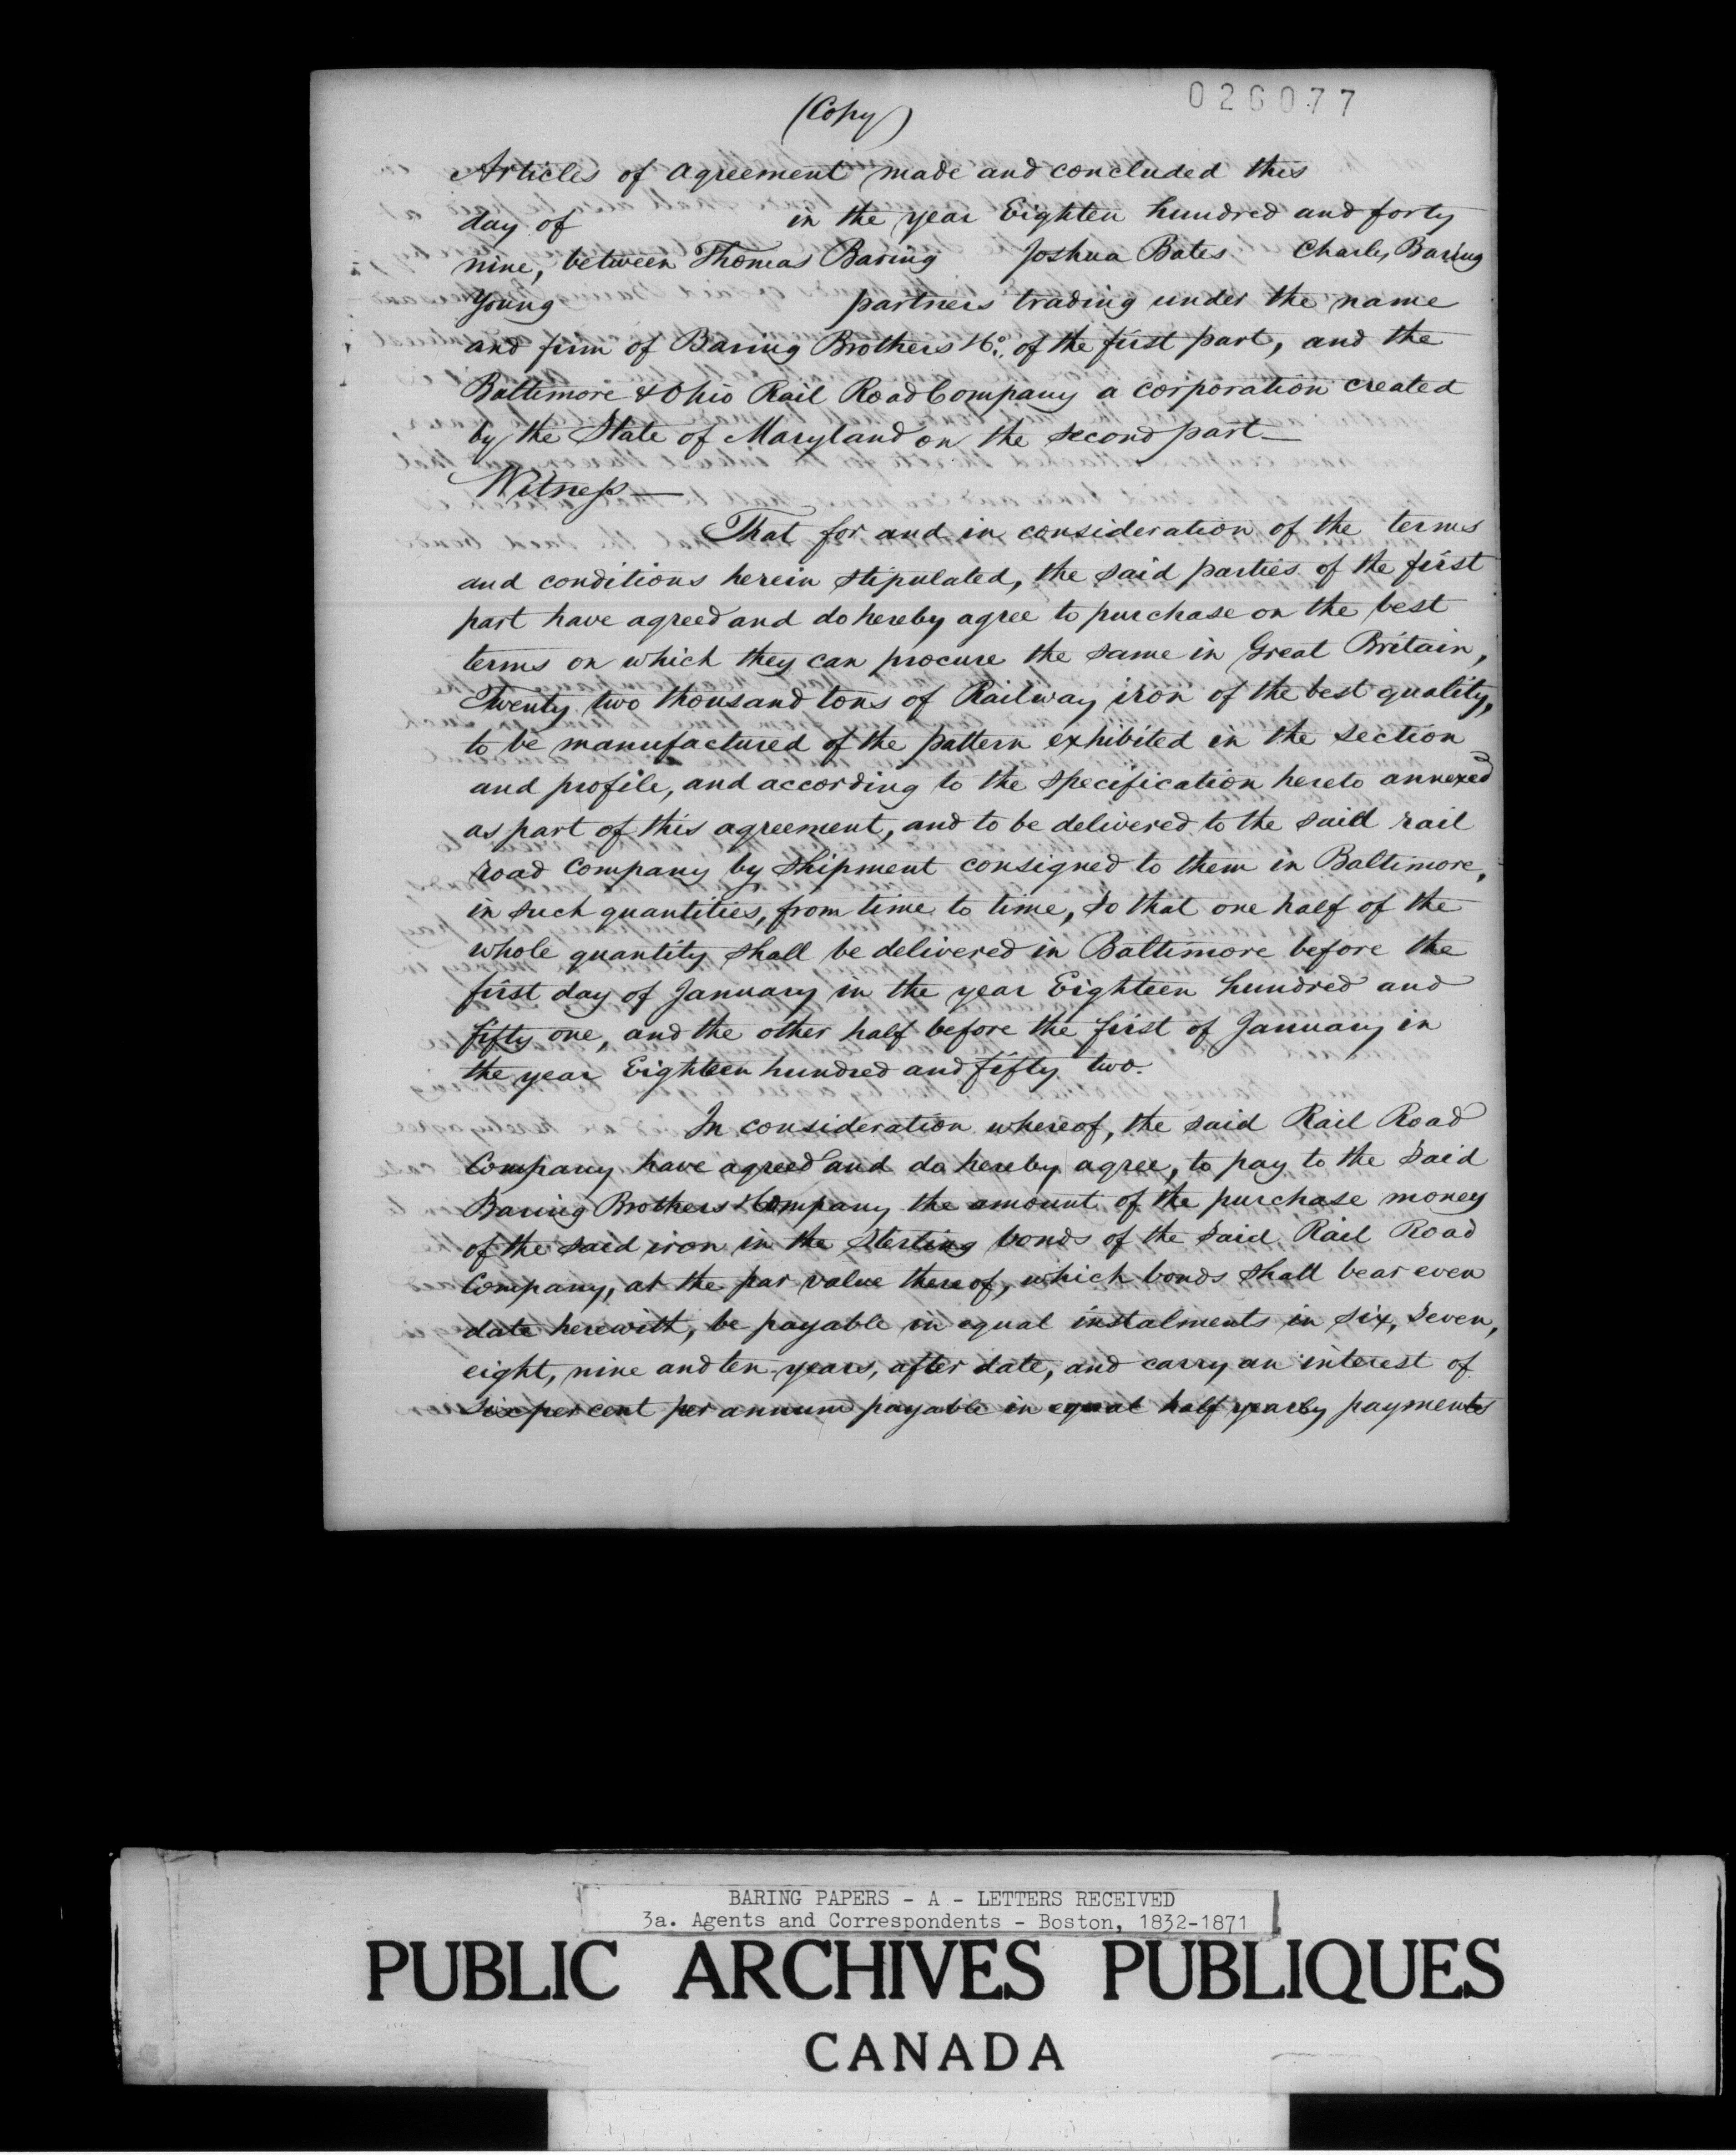 026077
(Copy)
Articles of agreement made and concluded this
day of in the year Eighteen hundred and forty
nine, between Thomas Baring Joshua Bates Charles Baring
Young partners trading under the name
and firm of Baring Brothers & Co. of the first part, and the
Baltimore & Ohio Rail Road Company a corporation created
by the State of Maryland on the second part—
Witness—
That for and in consideration of the terms
and conditions herein stipulated, the said parties of the first
part have agreed and do hereby agree to purchase on the best
terms on which they can procure the same in Great Britain,
Twenty two thousand tons of Railway iron of the best quality,
to be manufactured of the pattern exhibited in the section
and profile, and according to the specification hereto annexed
as part of this agreement, and to be delivered to the said rail
road company by shipment consigned to them in Baltimore,
in such quantities, from time to time, so that one half of the
whole quantity shall be delivered in Baltimore before the
first day of January in the year Eighteen hundred and
fifty one, and the other half before the first of January in
the year Eighteen hundred and fifty two.
In consideration whereof, the said Rail Road
Company have agreed and do hereby agree, to pay to the said
Baring Brothers & Company the amount of the purchase money
of the said iron in the sterling bonds of the said Rail Road
Company, at the par value thereof, which bonds shall bear even
date herewith, be payable in equal instalments in six, seven,
eight, nine and ten years, after date, and carry an interest of
six per cent per annum payable in equal half yearly payments
BARING PAPERS - A - LETTERS RECEIVED
3a. Agents and Correspondents - Boston, 1832-1871
PUBLIC ARCHIVES PUBLIQUES
CANADA